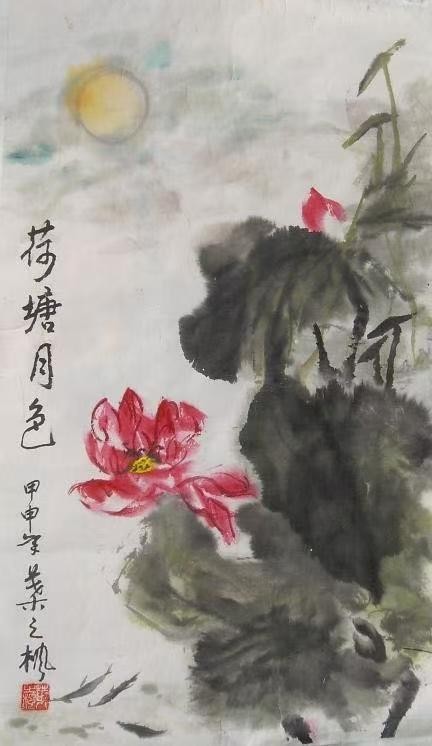 荷塘月色
甲申年叶之枫